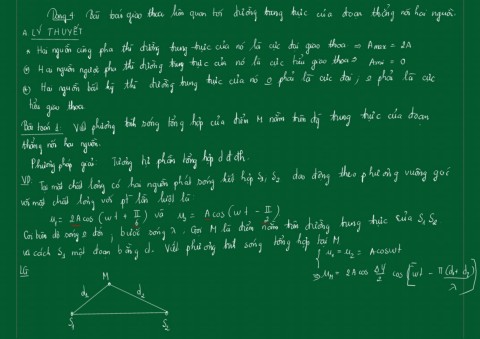 Dạng 4 Bài toán giao thoa liên quan tới đường trung trực của đoạn thẳng nối hai nguồn.
A. LÝ THUYẾT
* Hai nguồn cùng pha thì đường trung trực của nó là cực đại giao thoa ⇒ Amax = 2A
* Hai nguồn ngược pha thì đường trung trực của nó là cực tiểu giao thoa ⇒ Amin = 0
* Hai nguồn bất kỳ thì đường trung trực của nó o phải là cực đại, o phải là cực
tiểu giao thoa
Bài toán 1: Viết phương trình sóng tổng hợp của điểm M nằm trên đg trung trực của đoạn
thẳng nối hai nguồn.
Phương pháp giải: Tương tự phần tổng hợp dđđh.
VD: Tại mặt chất lỏng có hai nguồn phát sóng kết hợp S1, S2 dao động theo phương vuông góc
với mặt chất lỏng với pt lần lượt là:
u1 = 2A cos (ωt + π/6) và u2 = A cos (ωt - π/2)
Coi biên độ sóng o đổi, bước sóng λ, Gọi M là điểm nằm trên đường trung trực của S1 S2
và cách S1 một đoạn bằng d. Viết phương trình sóng tổng hợp tại M
LG
u1 = u2 = A cos ωt
⇒ uM = 2A cos Δφ/2 cos [ωt - π(d1 + d2)/λ]
M
d1 d2
S1 S2